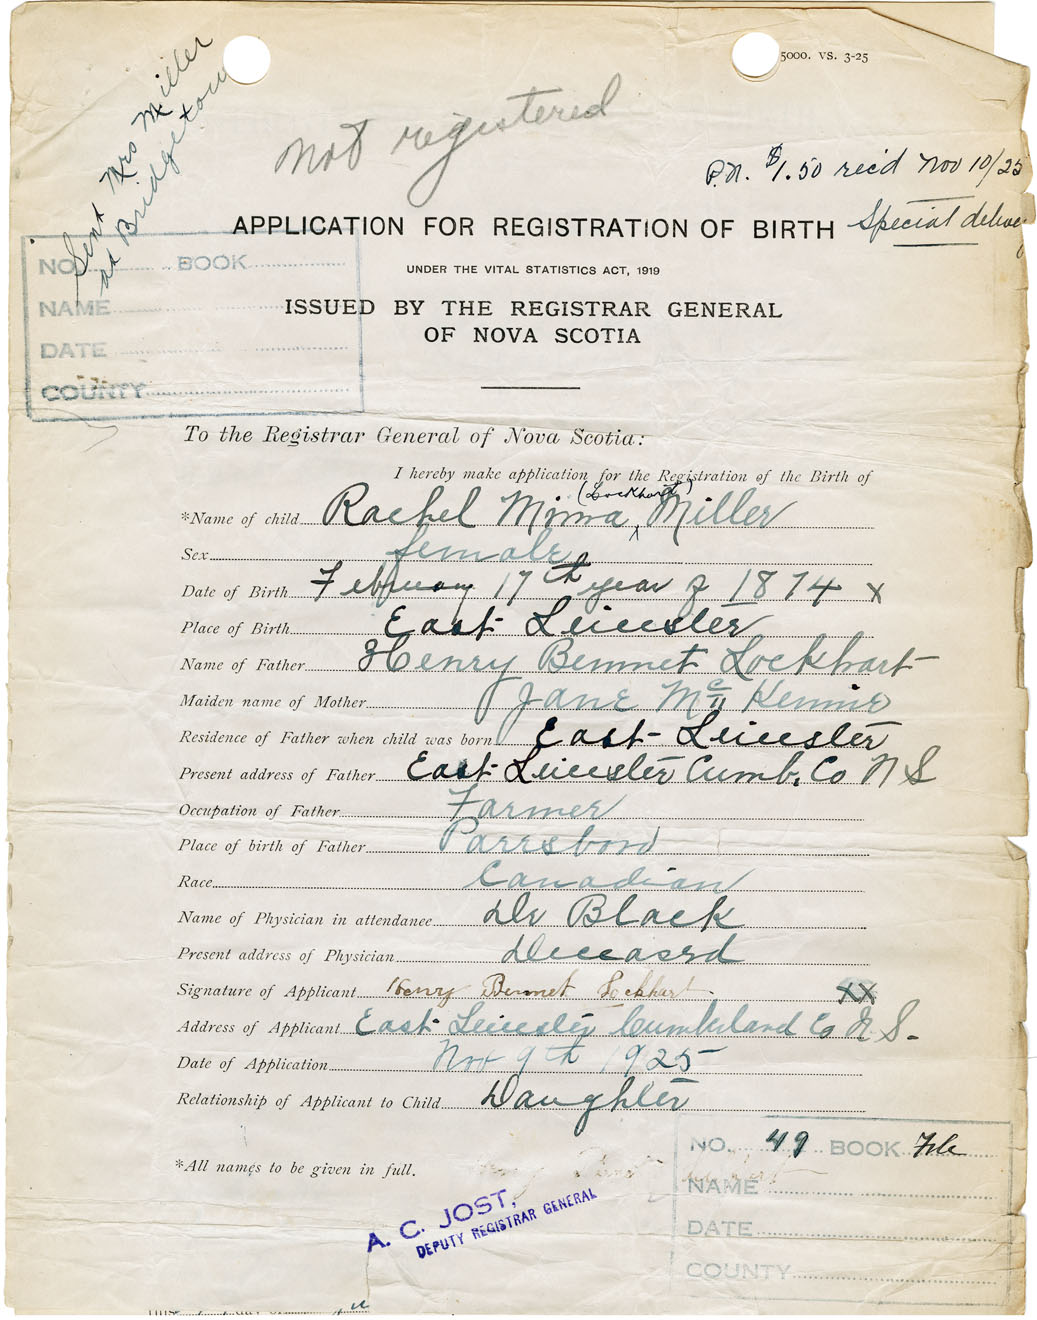 5000. VS. 3-25
Sent Mrs Miller
at Bridgetown
Not registered
P.N. $1.50 rec'd Nov 10/25
Special delive
APPLICATION FOR REGISTRATION OF BIRTH
UNDER THE VITAL STATISTICS ACT, 1919
ISSUED BY THE REGISTRAR GENERAL
OF NOVA SCOTIA
NO. BOOK
NAME
DATE
COUNTY
To the Registrar General of Nova Scotia:
I hereby make application for the Registration of the Birth of
(Lockhart)
*Name of child Rachel Minna ^ Miller
Sex female
Date of Birth February 17th year of 1874 x
Place of Birth East Leicester
Name of Father Henry Bennet Lockhart
Maiden name of Mother Jane McKennie
Residence of Father when child was born East Leicester
Present address of Father East Leicester Cumb. Co N S
Occupation of Father Farmer
Place of birth of Father Parrsboro
Race Canadian
Name of Physician in attendance Dr Black
Present address of Physician Deceasrd
Signature of Applicant Henry Bennet Lockhart XX
Address of Applicant East Leicester Cumberland Co N.S.
Date of Application Nov 9th 1925
Relationship of Applicant to Child Daughter
*All names to be given in full.
A. C. JOST,
DEPUTY REGISTRAR GENERAL
NO. 49 BOOK File
NAME
DATE
COUNTY